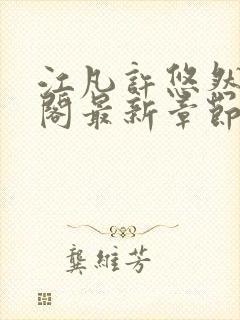 江凡許悠然
閣最新章節
龔維芳